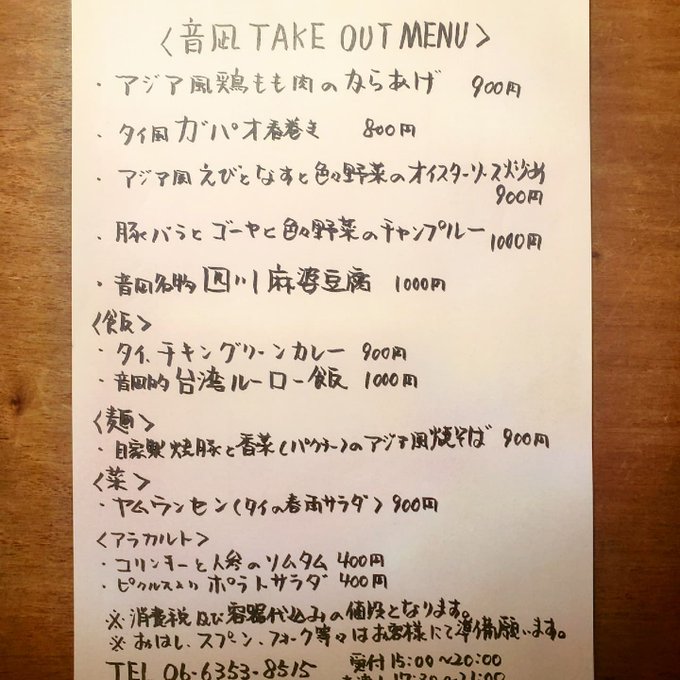 〈音凪 TAKE OUT MENU〉
・アジア風鶏もも肉のからあげ 900円
・タイ風ガパオ春巻き 800円
・アジア風えびとなすと色々野菜のオイスターソース炒め
900円
・豚バラとゴーヤと色々野菜のチャンプルー 1000円
・音凪名物 四川麻婆豆腐 1000円
〈飯〉
・タイ、チキングリーンカレー 900円
・音凪的台湾ルーロー飯 1000円
〈麺〉
・自家製焼豚と香菜(パクチー)のアジア風焼そば 900円
〈菜〉
・ヤムウンセン(タイの春雨サラダ) 900円
〈アラカルト〉
・コリンキーと人参のソムタム 400円
・ピクルス入りポテトサラダ 400円
※消費税及び容器代込みの値段となります。
※おはし、スプーン、フォーク等々はお客様にて準備願います。
TEL 06-6353-8515 受付15:00〜20:00
17:30〜21:00